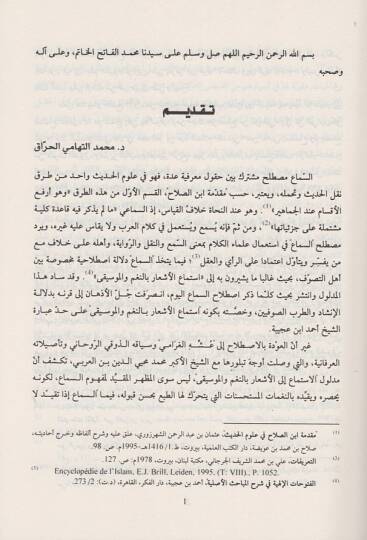 بسم الله الرحمن الرحيم اللهم صل وسلم على سيدنا محمد الفاتح الخاتم، وعلى آله
وصحبه
تقديم
د. محمد التهامي الحراق
السّماع مصطلح مشترك بين حقول معرفية عدة، فهو في علوم الحديث واحد من طرق
نقل الحديث وتحمله، ويعتبر، حسب مقدمة ابن الصلاح، القسم الأول من هذه الطرق «وهو أرفع
الأقسام عند الجماهير»(1). وهو عند النحاة خلاف القياس، إذ السماعي «ما لم يذكر فيه قاعدة كلية
مشتملة على جزئياتها»(2)، ومن ثمّ فإنه يسمع ويستعمل في كلام العرب ولا يقاس عليه غيره، ويرد
مصطلح السماع في استعمال علماء الكلام بمعنى السمع والنقل والرواية، وأهله على خلاف مع
من يفسر ويتأول اعتمادا على الرأي والعقل(3)؛ فيما يتخذ السماع دلالة اصطلاحية مخصوصة بين
أهل التصوف، بحيث غالبا ما يشيرون به إلى «استماع الأشعار بالنغم والموسيقى»(4). وقد ساد هذا
المدلول وانتشر بحيث كلما ذكر اصطلاح السماع اليوم، انصرفت جُلّ الأذهان إلى قرنه بدلالة
الإنشاد والطرب الصوفيين، وخصّته بكونه استماع الأشعار بالنغم والموسيقى على حد عبارة
الشيخ أحمد ابن عجيبة.
غير أن العودة بالاصطلاح إلى سياقه الذوقي الروحاني وتأصيلاته
العرفانية، والتي وصلت أوجة تبلورها مع الشيخ الأكبر محمد محيي الدين بن العربي، تكشف أن
مدلول الاستماع إلى الأشعار بالنغم والموسيقى، ليس سوى المظهر المقيد لمفهوم السماع، لكونه
يحصره ويقيّده بالنغمات المستحسنات التي يتحرك لها الطبع بحسن قبوله، فيما السماع إذا تقيد لا
(1) مقدمة ابن الصلاح في علوم الحديث، عثمان بن عبد الرحمن الشهرزوري، علق عليه وشرح ألفاظه وخرج أحاديثه،
صلاح بن محمد بن عويضة، دار الكتب العلمية، بيروت، ط.1/ 1416هـ-1995م، ص. 98.
(2) التعريفات، علي بن محمد الشريف الجرجاني، مكتبة لبنان، بيروت، 1978م، ص. 127.
(3) Encyclopédie de l'Islam, E.J. Brill, Leiden, 1995, (T: VIII), P. 1052.
(4) الفتوحات الإلهية في شرح المباحث الأصلية، أحمد بن عجيبة، دار الفكر، القاهرة، (د.ت): 2/ 273.
1